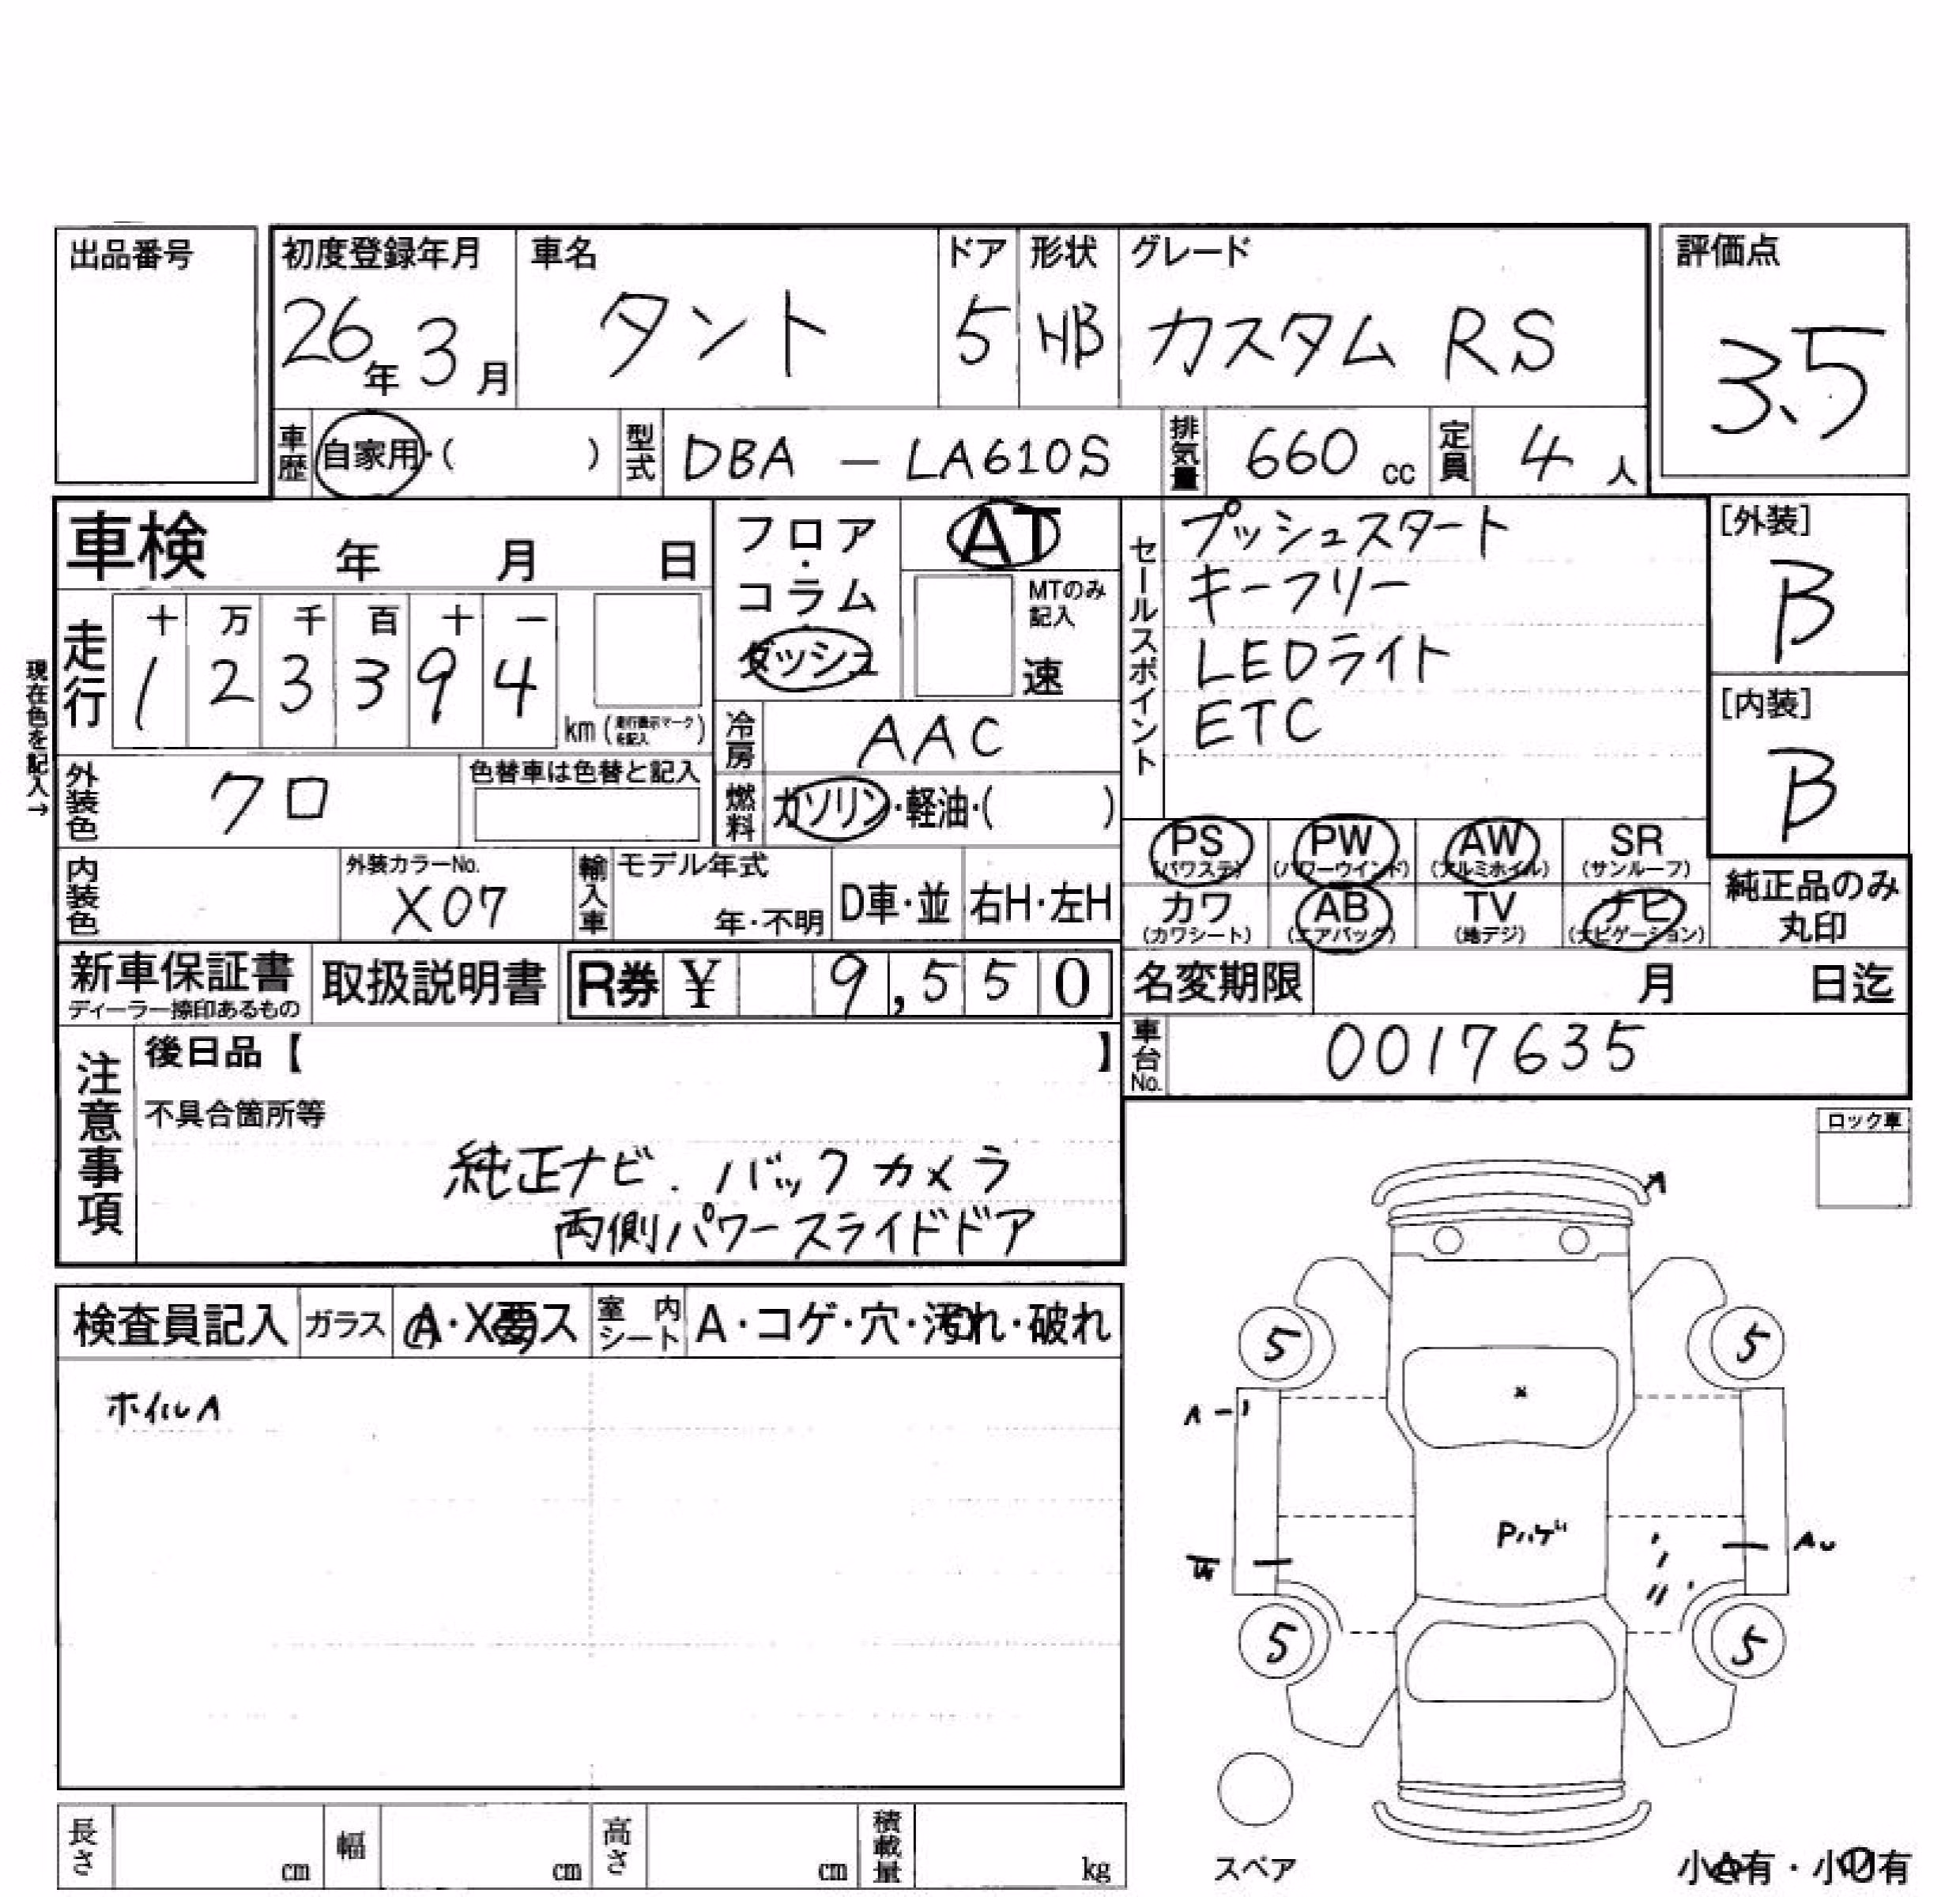 出品番号
初度登録年月
26年3月
車名
タント
ドア
5
形状
HB
グレード
カスタム RS
評価点
3.5
車歴
自家用・( )
型式
DBA — LA610S
排気量
660 cc
定員
4人
車検 年 月 日
フロア・コラム
ダッシュ
AT
MTのみ記入
速
セールスポイント
プッシュスタート
キーフリー
LEDライト
ETC
[外装]
B
[内装]
B
現在色を記入→
走行
十 万 千 百 十 一
1 2 3 3 9 4
km (走行表示マークを記入)
冷房
AAC
燃料
ガソリン・軽油・( )
外装色
クロ
色替車は色替と記入
内装色
外装カラーNo.
X07
輸入車
モデル年式
年・不明
D車・並
右H・左H
PS
(パワステ)
PW
(パワーウインド)
AW
(アルミホイル)
SR
(サンルーフ)
カワ
(カワシート)
AB
(エアバック)
TV
(地デジ)
ナビ
(ナビゲーション)
純正品のみ
丸印
新車保証書
ディーラー捺印あるもの
取扱説明書
R券 ¥ 9,550
名変期限 月 日迄
車台No.
0017635
注意事項
後日品【 】
不具合箇所等
純正ナビ．バックカメラ
両側パワースライドドア
ロック車
検査員記入
ガラス
A・X要ス
室内シート
A・コゲ・穴・汚れ・破れ
ホイルA
A
5
5
A-1
Pハゲ
AU
5
5
スペア
長さ cm
幅 cm
高さ cm
積載量 kg
小A有・小U有